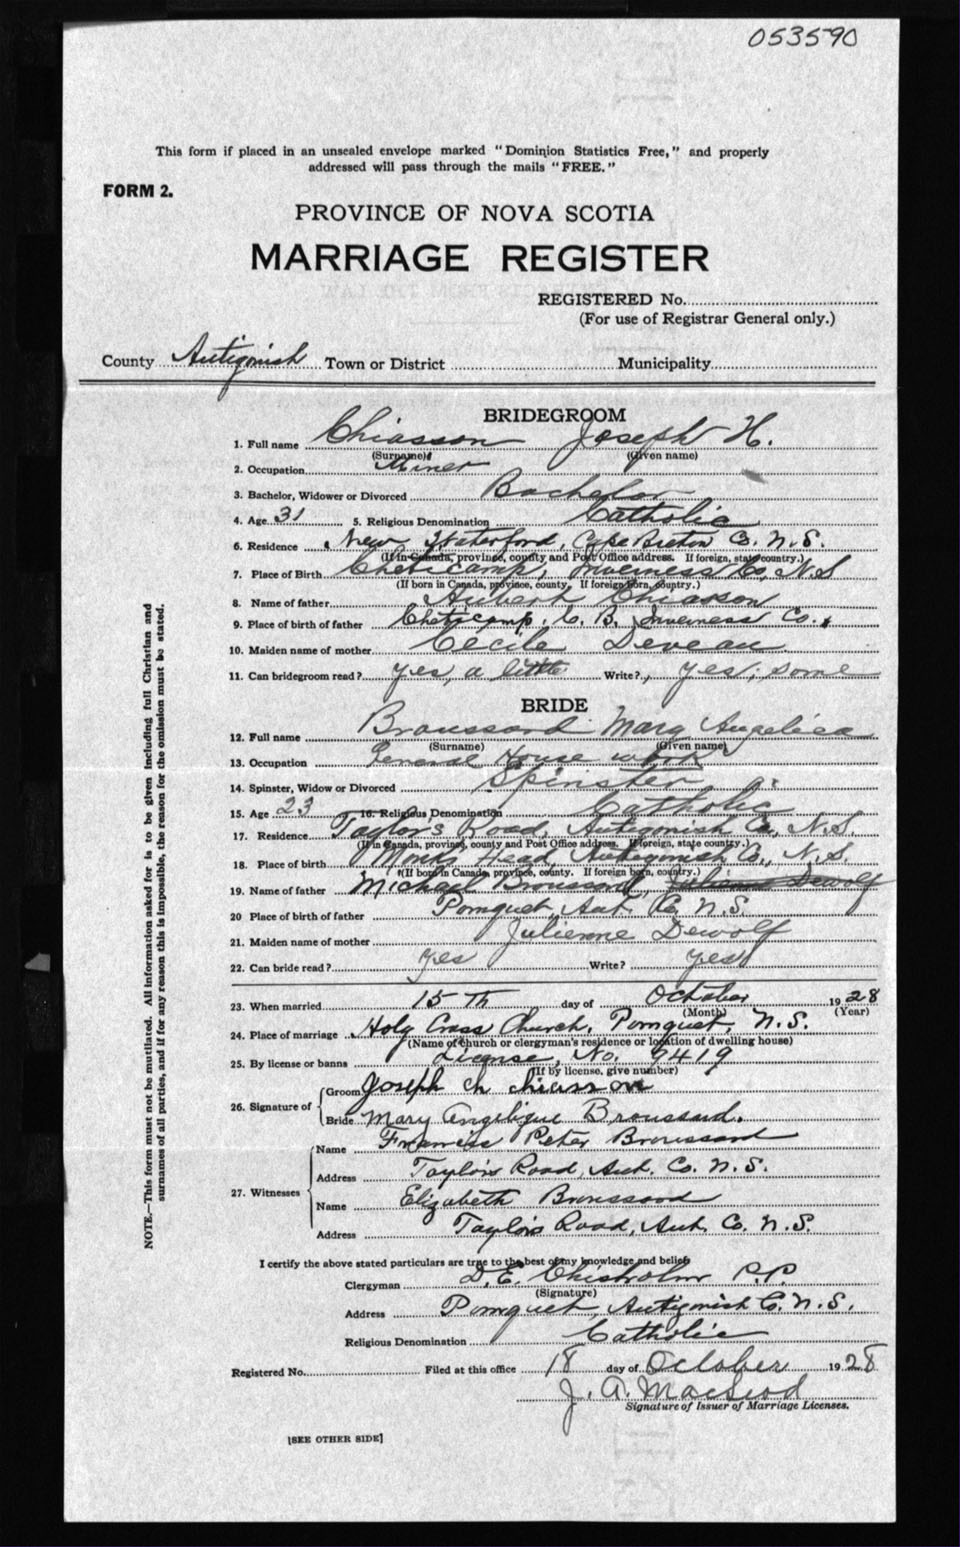 053590
This form if placed in an unsealed envelope marked "Dominion Statistics Free," and properly
addressed will pass through the mails "FREE."
FORM 2.
PROVINCE OF NOVA SCOTIA
MARRIAGE REGISTER
REGISTERED No.
(For use of Registrar General only.)
County Antigonish Town or District Municipality
BRIDEGROOM
1. Full name Chiasson Joseph H.
(Surname) (Given name)
2. Occupation Miner
3. Bachelor, Widower or Divorced Bachelor
4. Age 31 5. Religious Denomination Catholic
6. Residence New Waterford, Cape Breton Co. N.S.
(If in Canada, province, county and Post Office address. If foreign, state country.)
7. Place of Birth Cheticamp, Inverness Co, N.S
(If born in Canada, province, county. If foreign born, country.)
8. Name of father Hubert Chiasson
9. Place of birth of father Cheticamp, C. B. Inverness Co.,
10. Maiden name of mother Cecile Deveau
11. Can bridegroom read? yes, a little Write? yes; some
BRIDE
12. Full name Broussard Mary Angelica
(Surname) (Given name)
13. Occupation General House work
14. Spinster, Widow or Divorced Spinster
15. Age 23 16. Religious Denomination Catholic
17. Residence Taylor's Road, Antigonish Co., N.S.
(If in Canada, province, county and Post Office address. If foreign, state country.)
18. Place of birth Monks Head, Antigonish Co., N.S.
(If born in Canada, province, county. If foreign born, country.)
19. Name of father Michael Broussard, Julienne Dewolf
20 Place of birth of father Pomquet, Ant. Co. N.S.
21. Maiden name of mother Julienne Dewolf
22. Can bride read? yes Write? yes
23. When married 15 TH day of October 1928
(Month) (Year)
24. Place of marriage Holy Cross Church, Pomquet, N.S.
(Name of church or clergyman's residence or location of dwelling house)
25. By license or banns License, No. 9419
(If by license, give number)
26. Signature of Groom Joseph ch chiasson
Bride Mary Angelique Broussard.
27. Witnesses Name Francis Peter Broussard
Address Taylors Road, Ant. Co. N.S.
Name Elizabeth Broussard
Address Taylors Road, Ant. Co. N.S.
I certify the above stated particulars are true to the best of my knowledge and belief:
Clergyman D. E. Chisholm P.P.
(Signature)
Address Pomquet, Antigonish Co. N.S.
Religious Denomination Catholic
Registered No. Filed at this office 18 day of October 1928
J. A. MacLeod
Signature of Issuer of Marriage Licenses.
[SEE OTHER SIDE]
NOTE.—This form must not be mutilated. All information asked for is to be given including full Christian and
surnames of all parties, and if for any reason this is impossible, the reason for the omission must be stated.